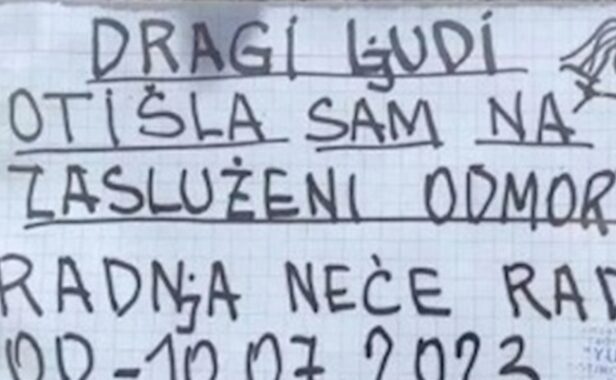 DRAGI LJUDI
OTIŠLA SAM NA
ZASLUŽENI ODMOR
RADNJA NEĆE RAD
DO -10.07.2023